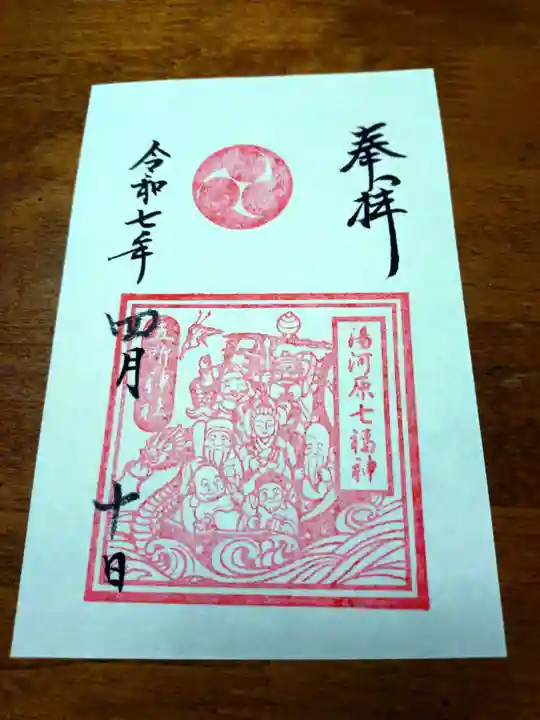 奉拝
湯河原七福神
五所神社
令和七年
四月
十日